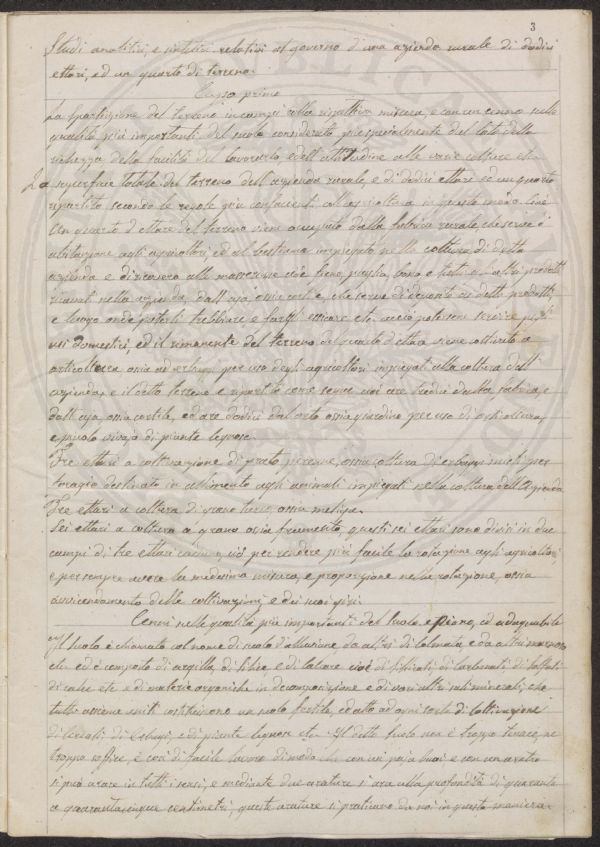 3
Studi analitici, e sintetici relativi al governo d'una azienda rurale di dodici
ettari, ed un quarto di terreno.
primo
La spartizione del terreno in campi colla rispettiva misura, e con un cenno sulle
qualità più importanti del suolo considerato più specialmente dal lato della
richezza della facilità del lavorarlo, e dell'attitudine alle varie colture etc.
La superficie totale del terreno dell'azienda rurale, e di dodici ettari ed un quarto
ripartito secondo le regole più confacenti all'agricoltura in questo modo. Cioè
Un quarto d'ettare del terreno viene occupato dalla fabrica rurale, che serve d'
abitazione agli agricoltori, ed al bestiame impiegato nella coltura di detta
azienda e di ricovero alle masserizie cioè fieno, paglia, altri prodotti
ricavati nella azienda, dall'aja, ossia cortile, che serve di detti prodotti,
e luogo onde poterli trebbiare e farli essicare etc. acciò potessero servire per gli
usi domestici, ed il rimanente del terreno del quarto d'ettara viene coltivato a
orticoltura ossia ad erbaggi per uso degli agricoltori impiegati alla coltura dell'
azienda, e il detto terreno e ripartito come segue cioè are tredici dalla fabrica, e
dall'aja, ossia cortile, ed are dodici dal orto ossia giardino per uso di orticoltura,
e piccolo vivajo di piante legnose.
Tre ettari a coltivazione di prato perenne, ossia coltura di erbaggi misti per
foragio destinato in alimento agli animali impiegati nella coltura dell'azienda
Tre ettari a coltura di grano turco, ossia meliga.
Sei ettari a coltura a grano ossia frumento, questi sei ettari sono divisi in due
campi di tre ettari caduno, ciò per rendere più facile la rotazione agli agricoltori,
e per sempre avere la medesima misura, e proporzione nella rotazione, ossia
avvicendamento delle coltivazioni e dei
Cenni sulle qualità più importanti del suolo e piano, ed adaquabile
Il suolo è chiamato col nome di suolo d'alluvione, da altri di colmata, e da altri
etc ed è composto di argilla, di silice e di calcare cioè di silicati, di carbonati di solfati
di calce etc e di materie organiche in decomposizione e di vari altri sali minerali, che
tutti assieme uniti costituiscono un suolo fertile, ed atto ad ogni sorte di coltivazione
di cereali, di erbaggi, e di piante legnose etc. Il detto suolo non è troppo tenace, ne
troppo soffice, e così di facile lavoro di modo che con un pajo buoi e con un aratro
si può arare in tutti i sensi, e mediante due arature si ara alla profondità di quaranta
a quarantacinque centimetri, queste arature si praticano da noi in questa maniera.